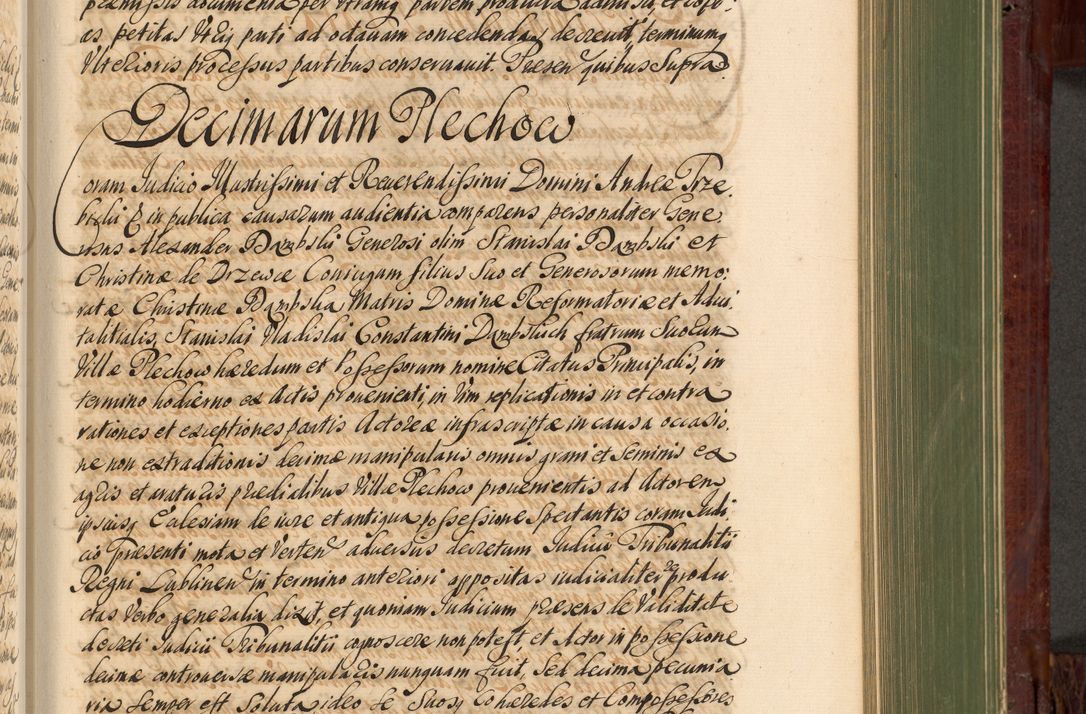 praemissis documenta per utramq partem producta admisit, et copi
as petitas Utriq parti ad octavam concedendas decrevit, terminumq
Ulterioris processus partibus conservavit. Praesen quibus Supra
Decimarum Plechow
Coram Judicio Illustrissimi et Reverendissimi Domini Andreae Trze
bicki & in publica causarum audientia comparens personaliter Gene
rosus Alexander Dąmbski Generosi olim Stanislai Dąmbski et
Christinae de Drzewce Coniugum filius Suo et Generosorum memo:
ratae Christinae Dąmbska Matris Dominae Reformatoriae et Advi
talitialis, Stanislai Vladislai Constantini Dąmbskich fratrum Suorum
Villae Plechow haeredum et Possessorum nomine Citatus Principalis, in
termino hodierno ex Actis provenienti, in Vim replicationis in et contra
rationes et exceptiones partis Actoreae infrascriptae in causa occasio
ne non extraditionis decimae manipularis omnis grani et Seminis ex
agris et araturis praedialibus Villae Plechow provenientis ad Actorem
ipsiusq Ecclesiam de iure et antiqua possessione Spectantis coram Judi
cio praesenti mota et Verten adversus decretum Judicii Tribunalitii
Regni Lublinen in termino anteriori appositas iudicialiter produ
ctas Verbo generalia dixit, et quoniam Judicium praesens de Validitate
decreti Judicii Tribunalitii cognoscere non potest, et Actor in possessione
decimae controversae manipularis nunquam fuit, Sed decima pecunia
ria Semper est Soluta ideo Se Suosq Cohaeredes et Compossessores